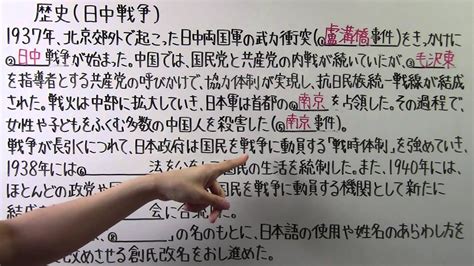 歴史(日中戦争)
1937年、北京郊外で起こった日中両国軍の武力衝突(①盧溝橋事件)をきっかけに
②日中戦争が始まった。中国では、国民党と共産党の内戦が続いていたが、③毛沢東
を指導者とする共産党の呼びかけで、協力体制が実現し、抗日民族統一戦線が結成
された。戦火は中部に拡大していき、日本軍は首都の④南京を占領した。その過程で、
女性や子どもをふくむ多数の中国人を殺害した(⑤南京事件)。
戦争が長引くにつれて、日本政府は国民を戦争に動員する「戦時体制」を強めていき、
1938年には 法を 国民の生活を統制した。また、1940年には、
ほとんどの政党や 国民を戦争に動員する機関として新たに
結成 会に合
の名のもとに、日本語の使用や姓名のあらわし方を
改めさせる創氏改名をおし進めた。